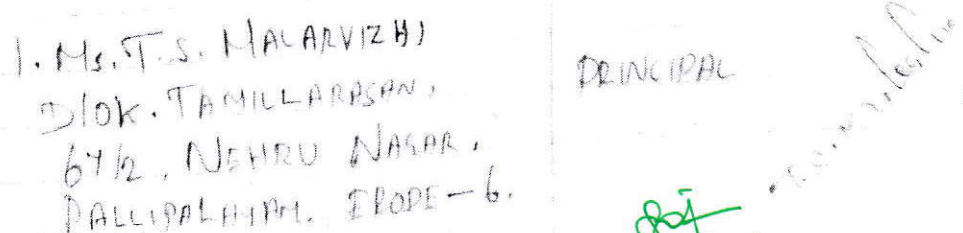 1. Ms. T. S. MALARVIZHI
D/OK. TAMILLARASAN,
67/2, NEHRU NAGAR,
PALLIPALAYAM. ERODE-6.
PRINCIPAL